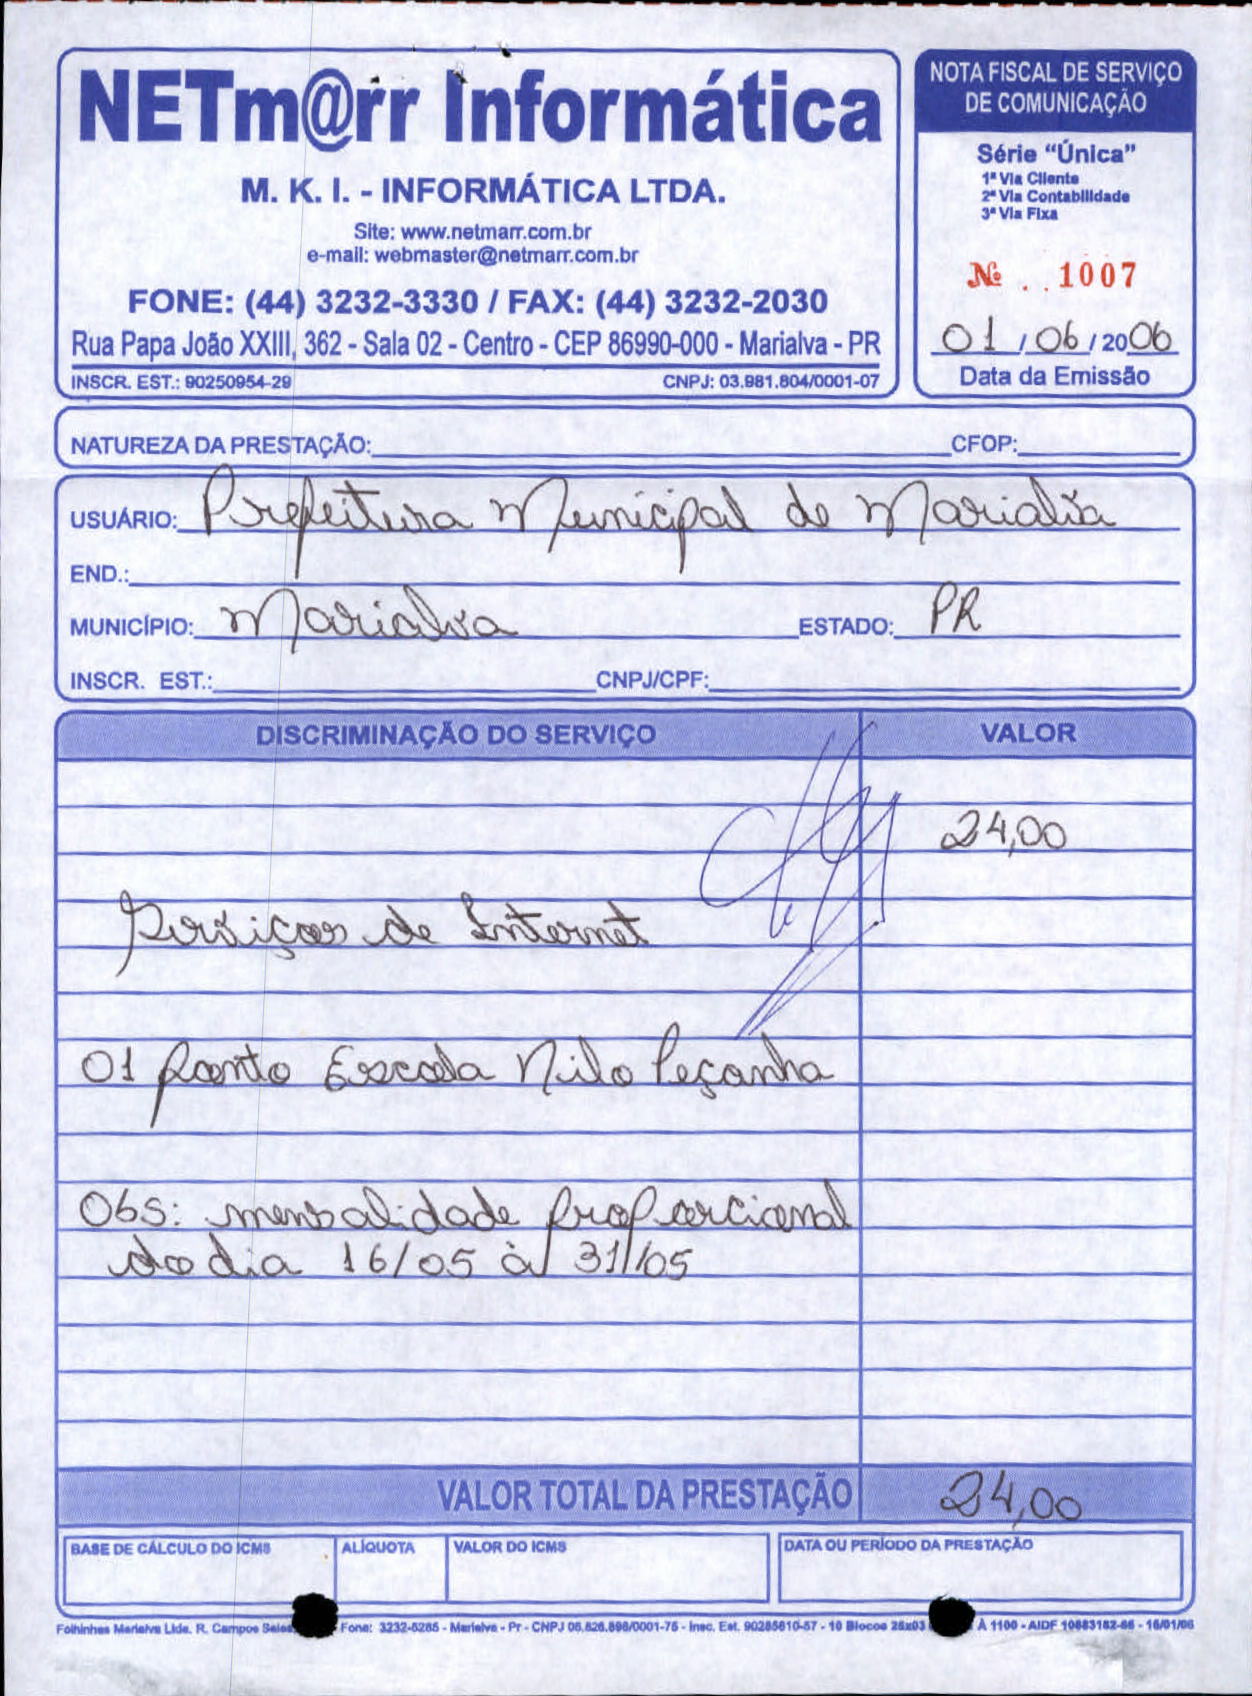 NETm@rr Informática
M. K. I. - INFORMÁTICA LTDA.
Site: www.netmarr.com.br
e-mail: webmaster@netmarr.com.br
FONE: (44) 3232-3330 / FAX: (44) 3232-2030
Rua Papa João XXIII, 362 - Sala 02 - Centro - CEP 86990-000 - Marialva - PR
INSCR. EST.: 90250954-29 CNPJ: 03.981.804/0001-07
NOTA FISCAL DE SERVIÇO
DE COMUNICAÇÃO
Série “Única”
1ª Via Cliente
2ª Via Contabilidade
3ª Via Fixa
Nº 1007
01/06/2006
Data da Emissão
NATUREZA DA PRESTAÇÃO: CFOP:
USUÁRIO: Prefeitura Municipal de Marialva
END.:
MUNICÍPIO: Marialva ESTADO: PR
INSCR. EST.: CNPJ/CPF:
DISCRIMINAÇÃO DO SERVIÇO VALOR
24,00
Serviços de Internet
01 ponto Escola Nilo Peçanha
Obs: mensalidade proporcional
do dia 16/05 à 31/05
VALOR TOTAL DA PRESTAÇÃO 24,00
BASE DE CÁLCULO DO ICMS ALÍQUOTA VALOR DO ICMS DATA OU PERÍODO DA PRESTAÇÃO
Folhinhas Marialva Ltda. R. Campos Fone: 3232-5285 - Marialva - Pr - CNPJ 05.826.898/0001-75 - Insc. Est. 90285610-57 - 10 Blocos 25x03 À 1100 - AIDF 10683182-66 - 16/01/06